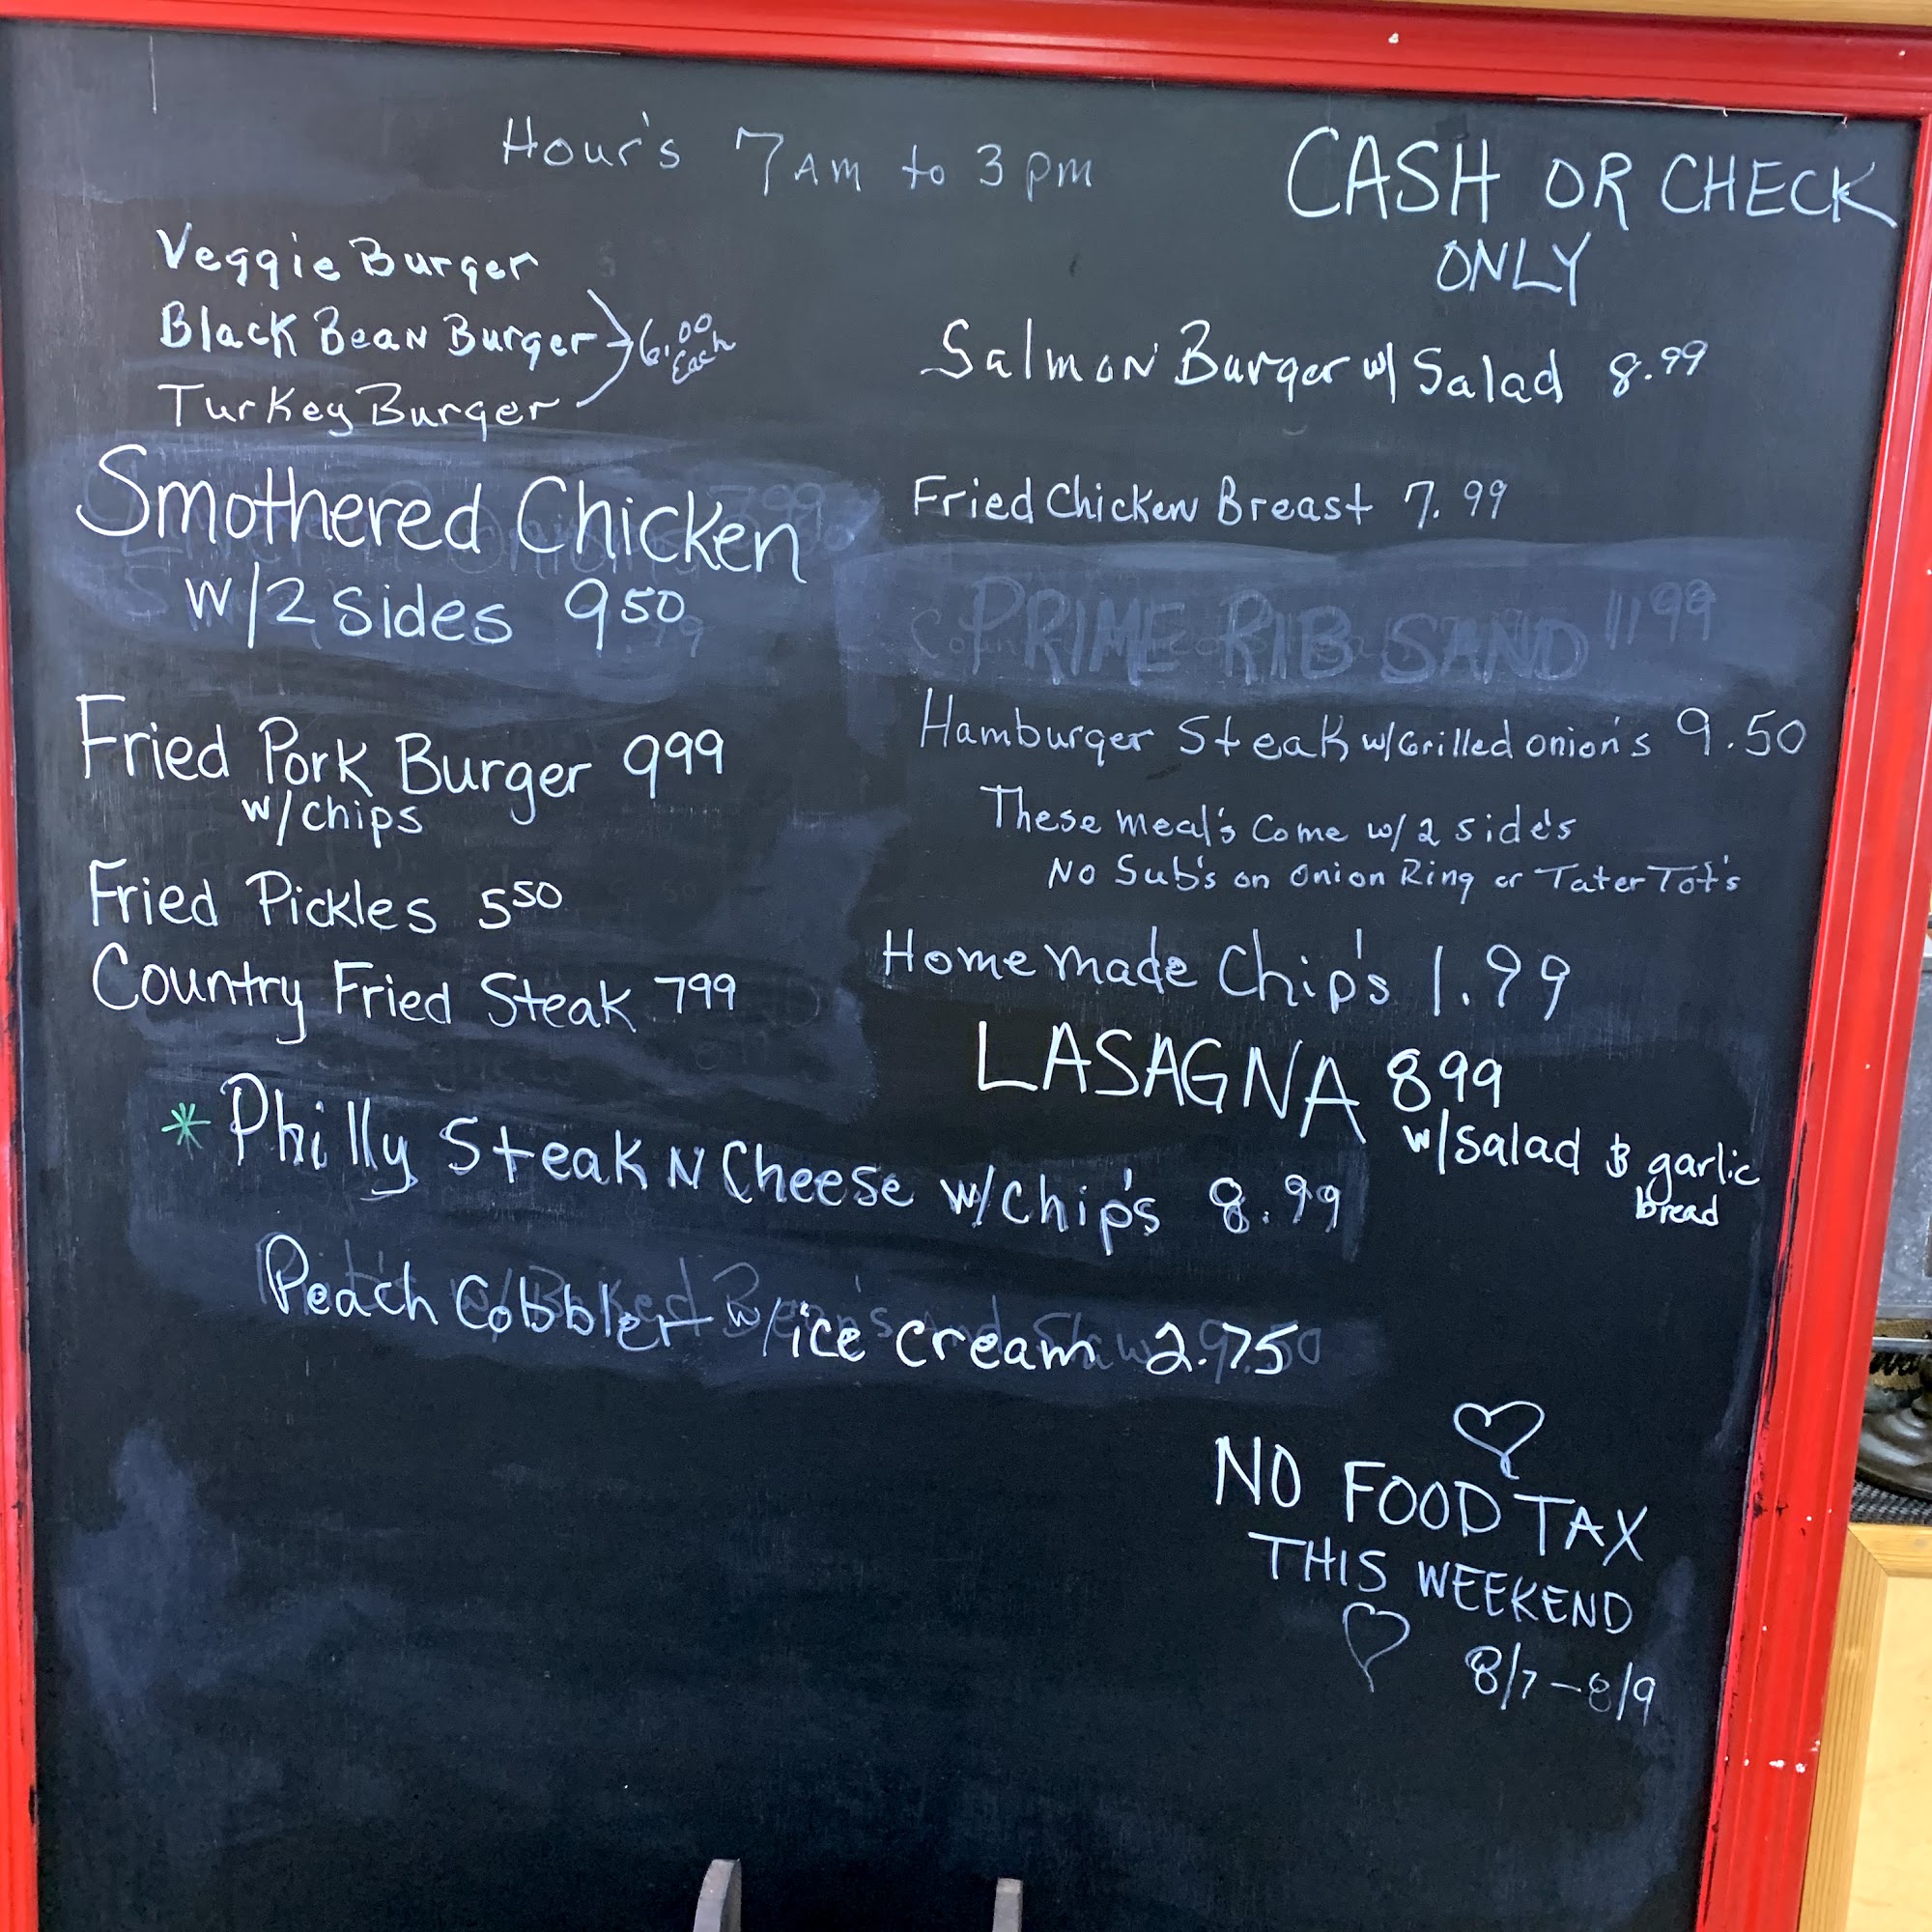 Hour's 7AM to 3pm
CASH OR CHECK
ONLY
Veggie Burger
Black Bean Burger 6.00 Each
Turkey Burger
Smothered Chicken
w/2 sides 950
Fried Pork Burger 999
w/chips
Fried Pickles 550
Country Fried Steak 799
Salmon Burger w/ Salad 8.99
Fried Chicken Breast 7.99
PRIME RIB SAND 1199
Hamburger Steak w/Grilled onion's 9.50
These meal's Come w/2 side's
No Sub's on Onion Ring or Tater Tot's
Home made Chip's 1.99
LASAGNA 899
w/salad & garlic
bread
* Philly Steak N Cheese w/Chip's 8.99
Peach Cobbler w/ice cream 2.75
NO FOOD TAX
THIS WEEKEND
8/7-8/9